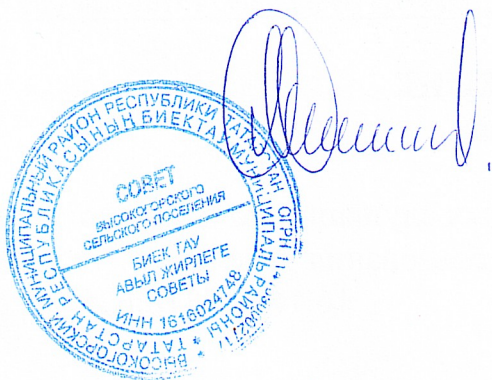 ВЫСОКОГОРСКИЙ МУНИЦИПАЛЬНЫЙ РАЙОН РЕСПУБЛИКИ ТАТАРСТАН ОГРН
ТАТАРСТАН РЕСПУБЛИКАСЫНЫҢ БИЕКТАУ МУНИЦИПАЛЬ РАЙОНЫ
СОВЕТ
ВЫСОКОГОРСКОГО
СЕЛЬСКОГО ПОСЕЛЕНИЯ
БИЕК ТАУ
АВЫЛ ЖИРЛЕГЕ
СОВЕТЫ
ИНН 1616024748